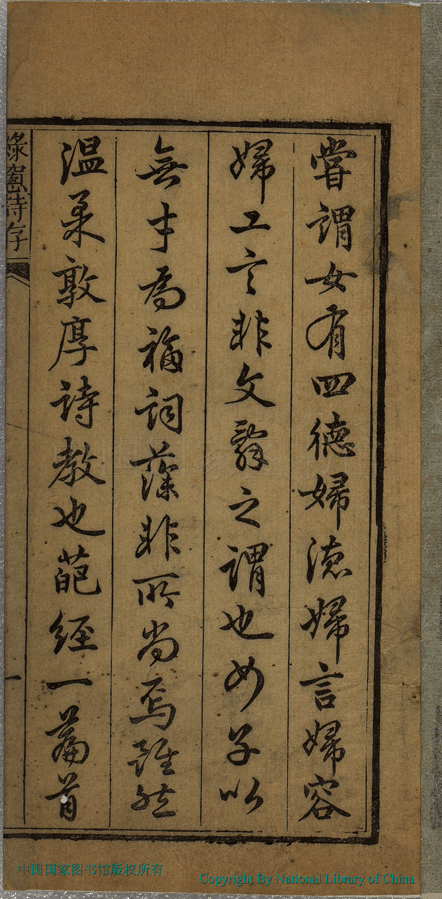 嘗謂女有四德婦德婦言婦容
婦工言非文辭之謂也女子以
無才為福詞藻非所尚焉雖然
溫柔敦厚詩教也葩經一篇首
綠窻詩存
一
中国国家图书馆版权所有
Copyright By National Library of China